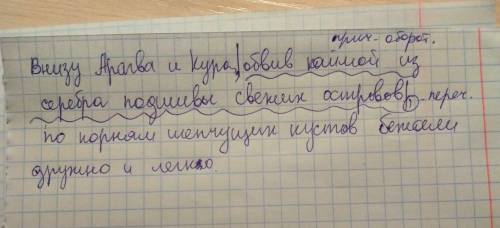 прич. оборот.
Внизу Арагва и Кура, обвив каймой из
серебра подошвы свежих островов, ①-переч.
по корням шепчущих кустов бежали
дружно и легко.